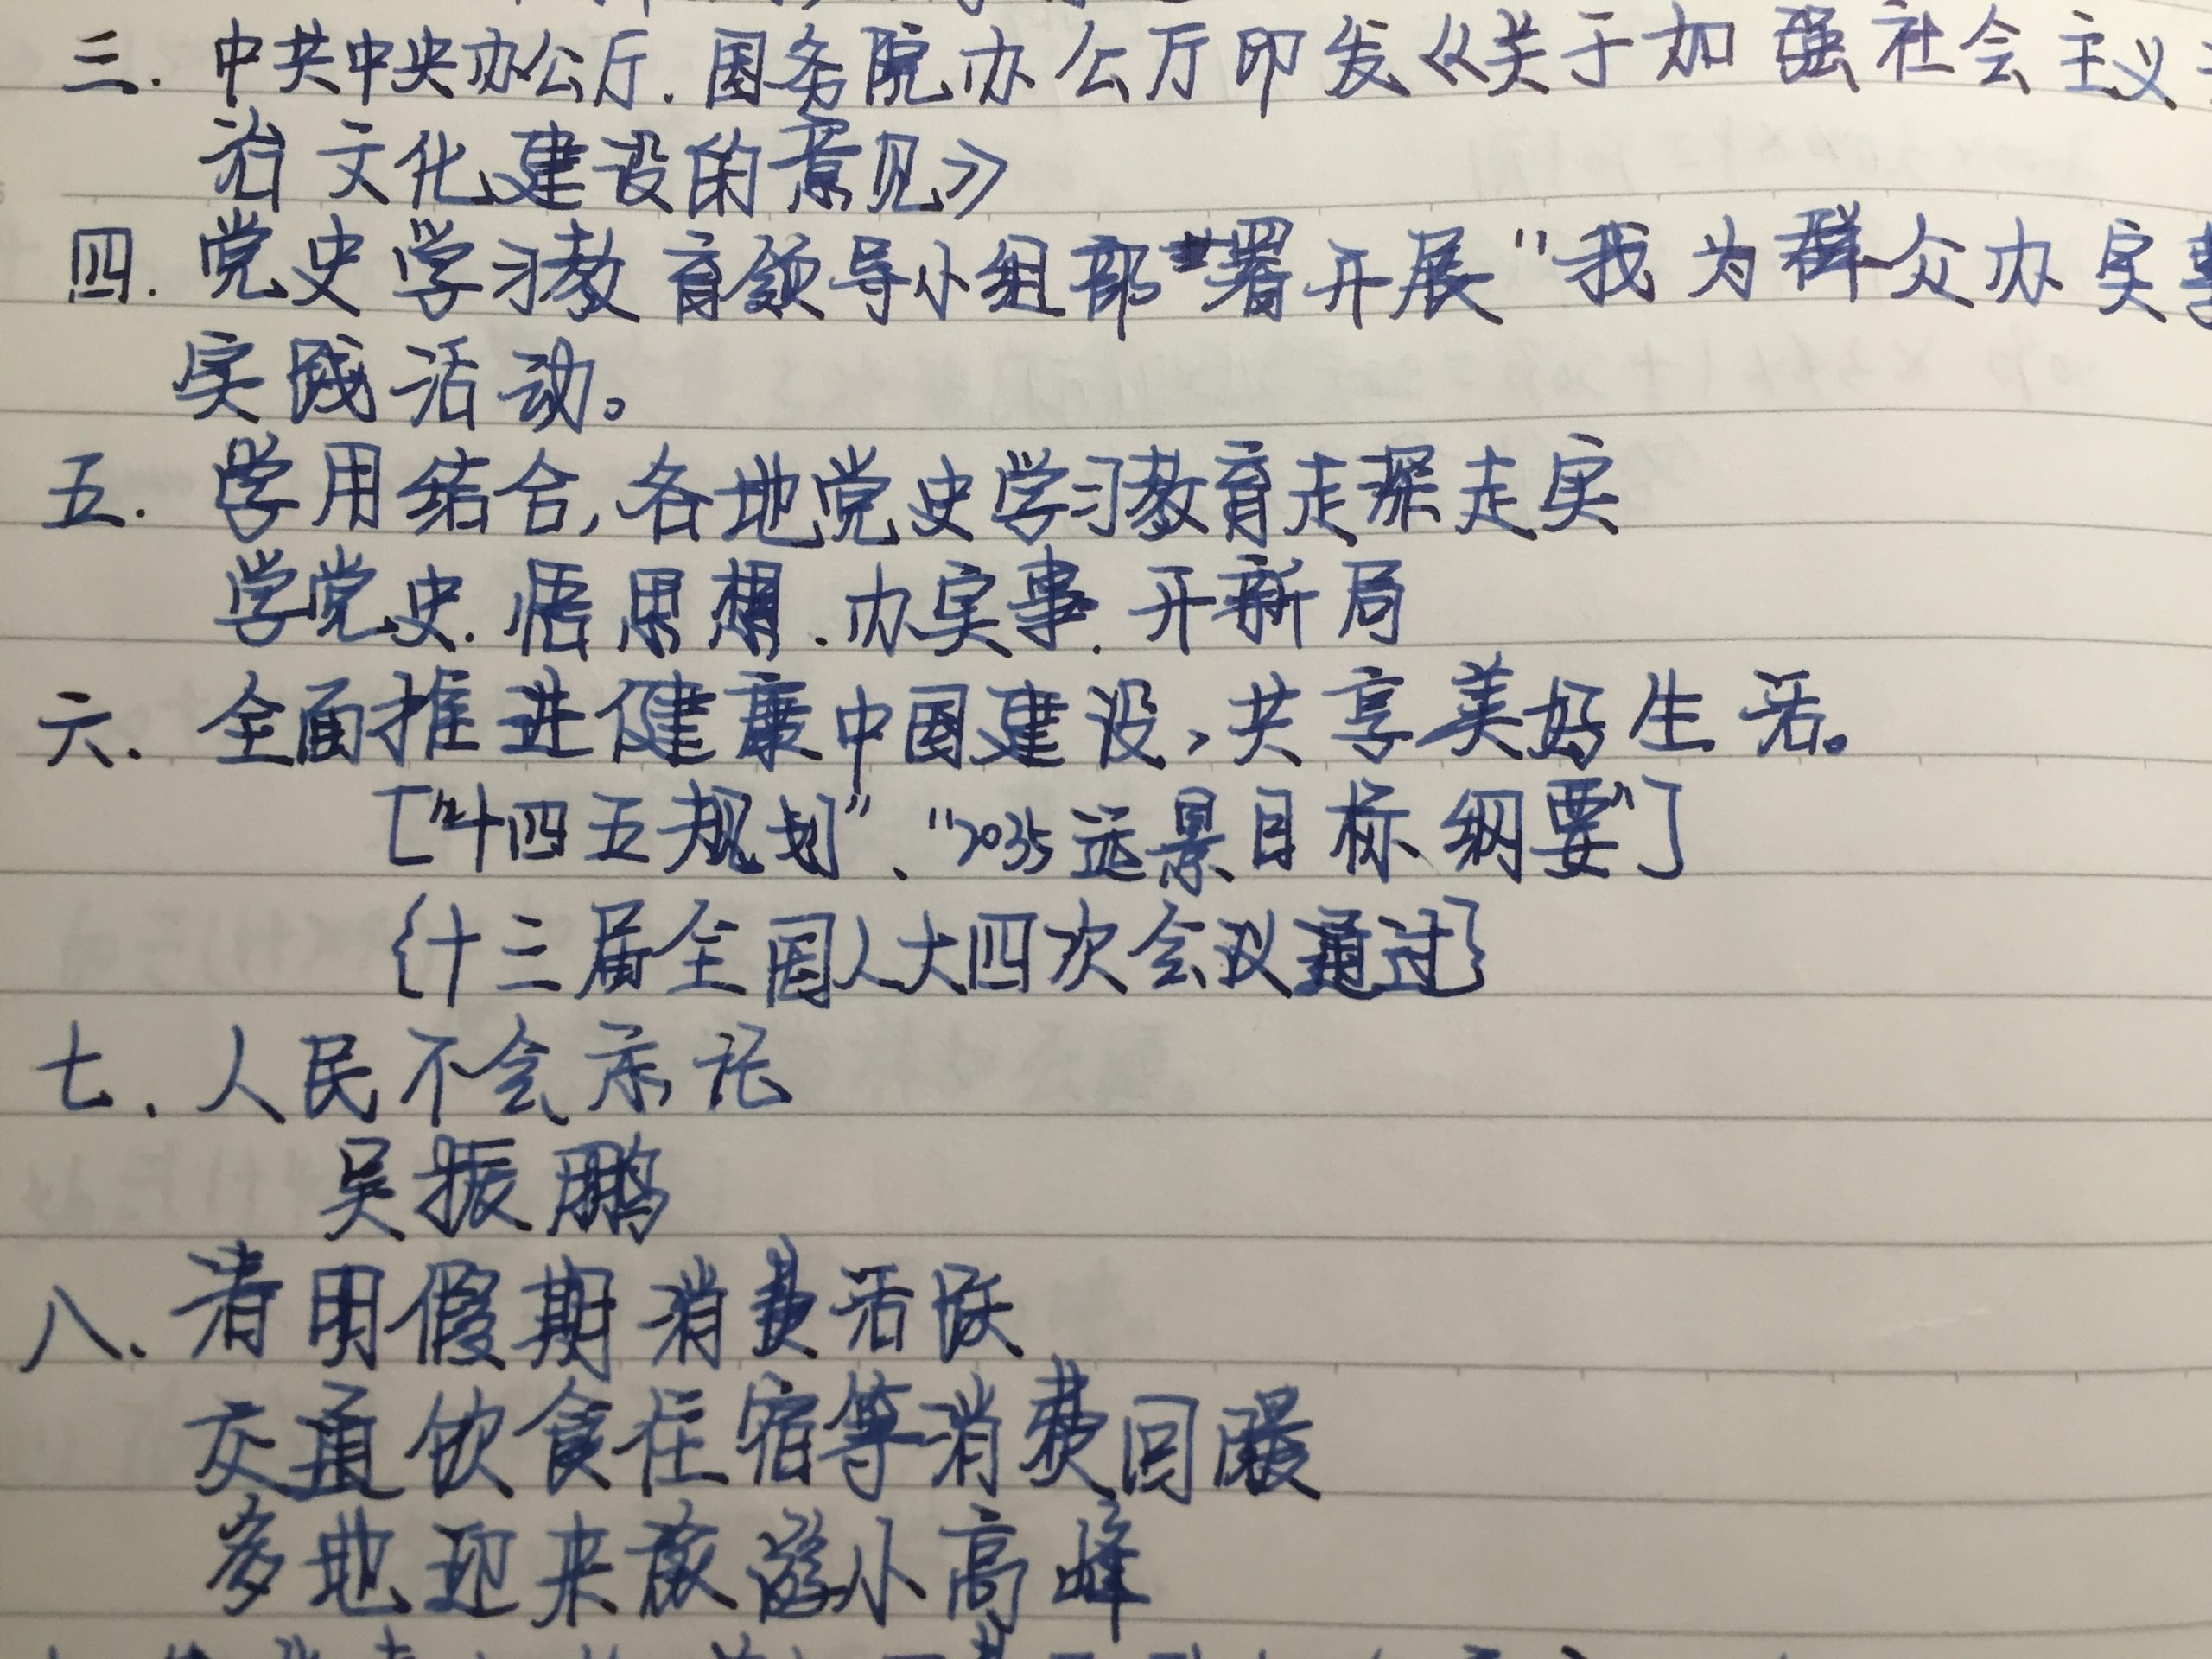 三. 中共中央办公厅. 国务院办公厅印发《关于加强社会主义
治文化建设的意见》
四. 党史学习教育领导小组部署开展“我为群众办实事
实践活动。
五. 学用结合, 各地党史学习教育走深走实
学党史. 悟思想. 办实事. 开新局
六. 全面推进健康中国建设, 共享美好生活。
[“十四五规划”、“2035远景目标纲要”]
{十三届全国人大四次会议通过}
七. 人民不会忘记
吴振鹏
八、清明假期消费活跃
交通饮食住宿等消费回暖
多地迎来旅游小高峰